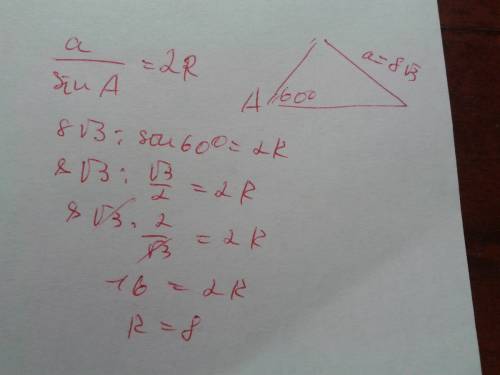 a/sin A = 2R
a=8√3
A 60°
8√3 : sin 60° = 2R
8√3 : √3/2 = 2R
8√3 · 2/√3 = 2R
16 = 2R
R = 8